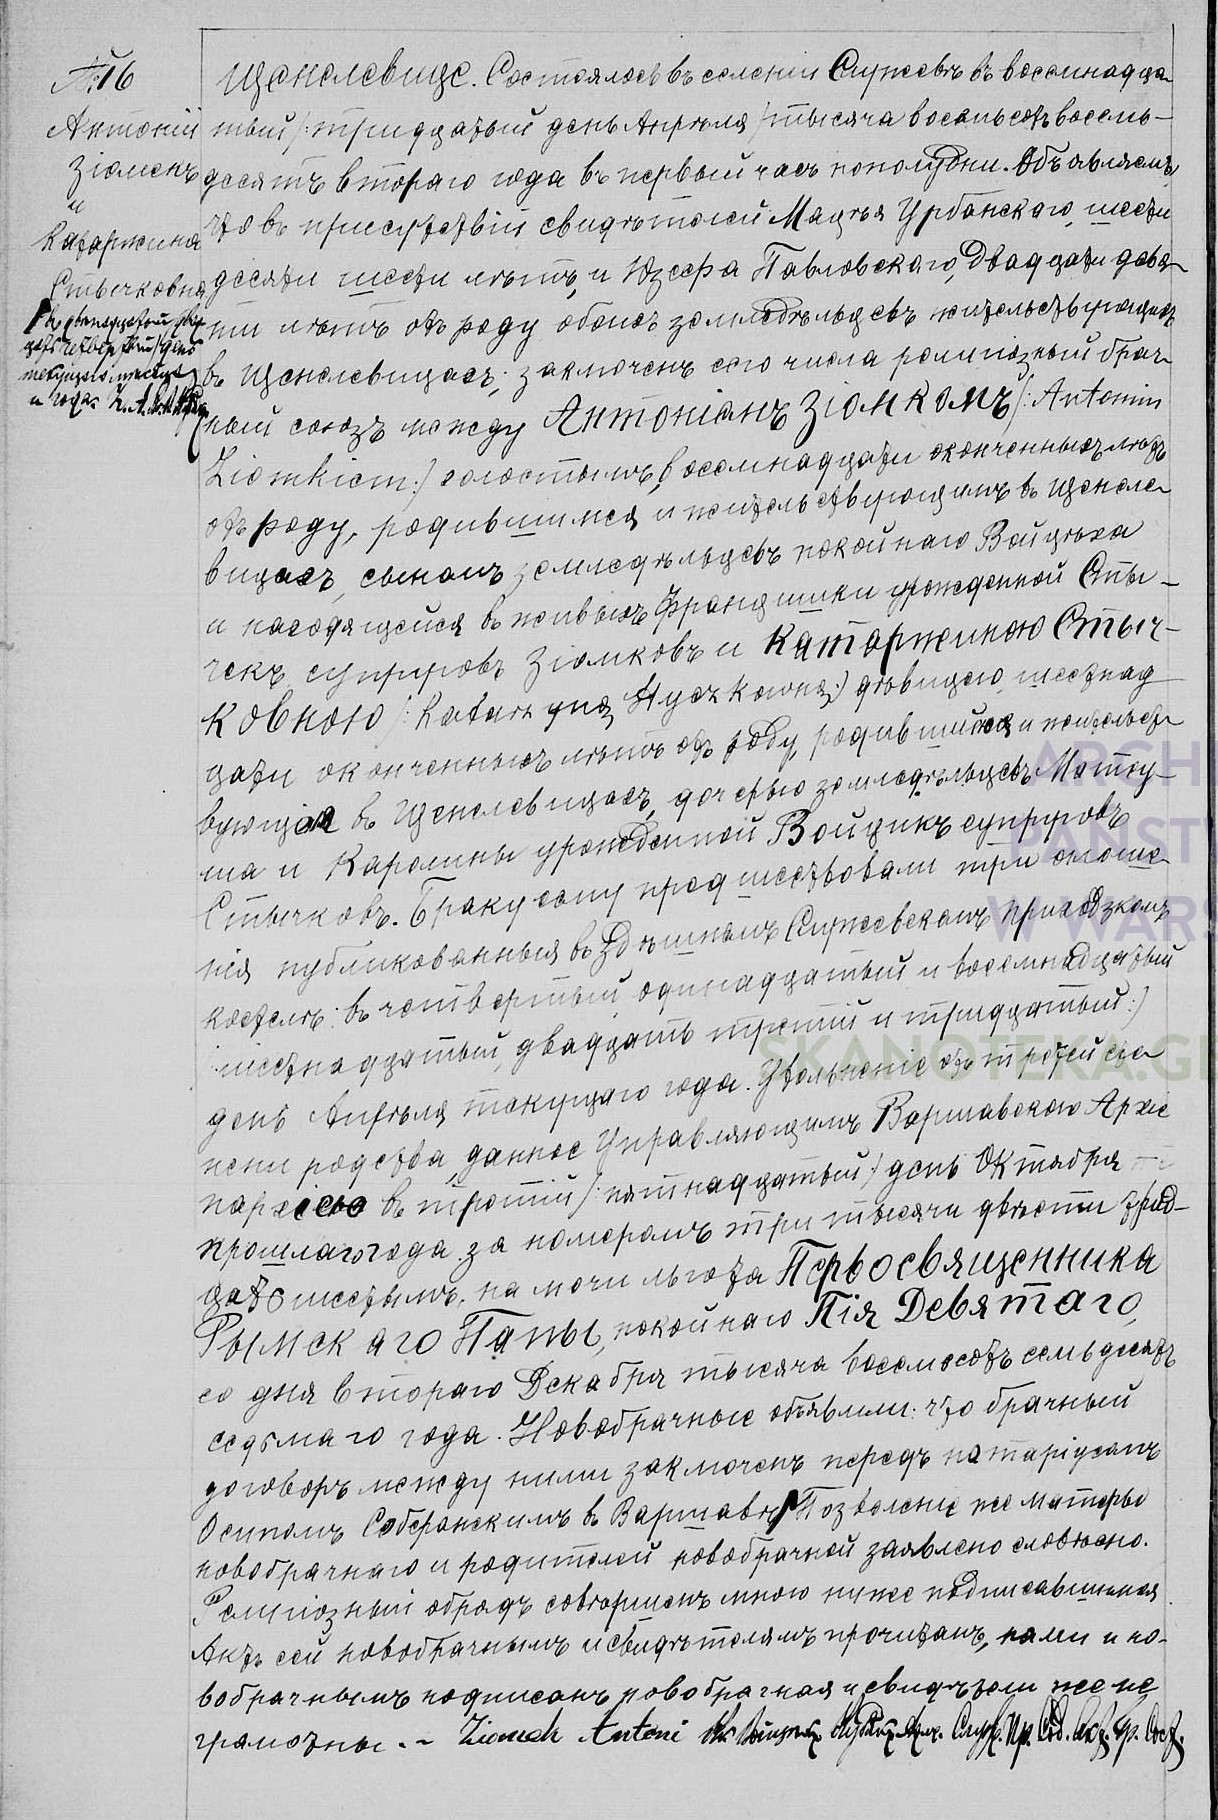 №16
Антоній
Зіомекъ
и
Катаржина
Стычковна
въ двенадцатый
день
текущаго мѣсяца
и года.
Щенслевице. Состоялось въ селеніи Служевѣ въ восемнадца-
тый /: тридцатый день Апрѣля / тысяча восемьсотъ восемь-
десятъ втораго года въ первый часъ пополудни. Объявляемъ,
что въ присутствіи свидѣтелей Мацѣя Урбанскаго, шести
десяти шести лѣтъ, и Юзефа Павловскаго, двадцати девя-
ти лѣтъ отъ роду обоихъ земледѣльцевъ жительствующихъ
въ Щенслевицахъ; заключенъ сего числа религіозный брач-
ный союзъ между Антоніемъ Зіомкомъ /: Antonim
Ziomkiem :/ холостымъ, восемнадцати оконченныхъ лѣтъ
отъ роду, родившимся и жительствующимъ въ Щенсле-
вицахъ, сыномъ земледѣльцевъ покойнаго Войцѣха
и находящейся въ живыхъ Францишки урожденной Сты-
чекъ, супруговъ Зіомковъ и Катаржиною Стыч-
ковною /: Katarzyna Styczkowna :/ дѣвицею, шестнад
цати оконченныхъ лѣтъ отъ роду, родившейся и жительст-
вующая въ Щенслевицахъ, дочерью земледѣльцевъ Матеу-
ша и Каролины урожденной Войцикъ супруговъ
Стычковъ. Браку сему предшествовали три оглаше-
нія публикованныя въ здѣшнемъ Служевскомъ приходскомъ
костелѣ: въ четвертый, одинадцатый и восемнадцатый
шестнадцатый, двадцать третій и тридцатый :/
день Апрѣля текущаго года. Увольненіе отъ третей сте-
пени родства, данное Управляющимъ Варшавскою Архіе
пархіею въ третій /: пятнадцатый :/ день Октября
прошлаго года за номеромъ три тысячи двѣсти трид-
цать шестымъ, на мочи льгота Первосвященника
Рымскаго Папы, покойнаго Пія Девятаго,
со дня втораго Декабря тысяча восемьсотъ семьдесятъ
седьмаго года. Новобрачные объявили: что брачный
договоръ между ними заключенъ передъ нотаріусомъ
Осипомъ въ Варшавѣ. Позволеніе же матерью
новобрачнаго и родителей новобрачной заявлено словесно.
Религіозный обрядъ совершенъ мною ниже подписавшимся
Актъ сей новобрачнымъ и свидѣтелямъ прочитанъ, нами и но-
вобрачнымъ подписанъ, новобрачная и свидѣтели же не
грамотны. - Ziomek Antoni
ARCH
PAŃSTW
W WARS
SKANOTEKA.GE